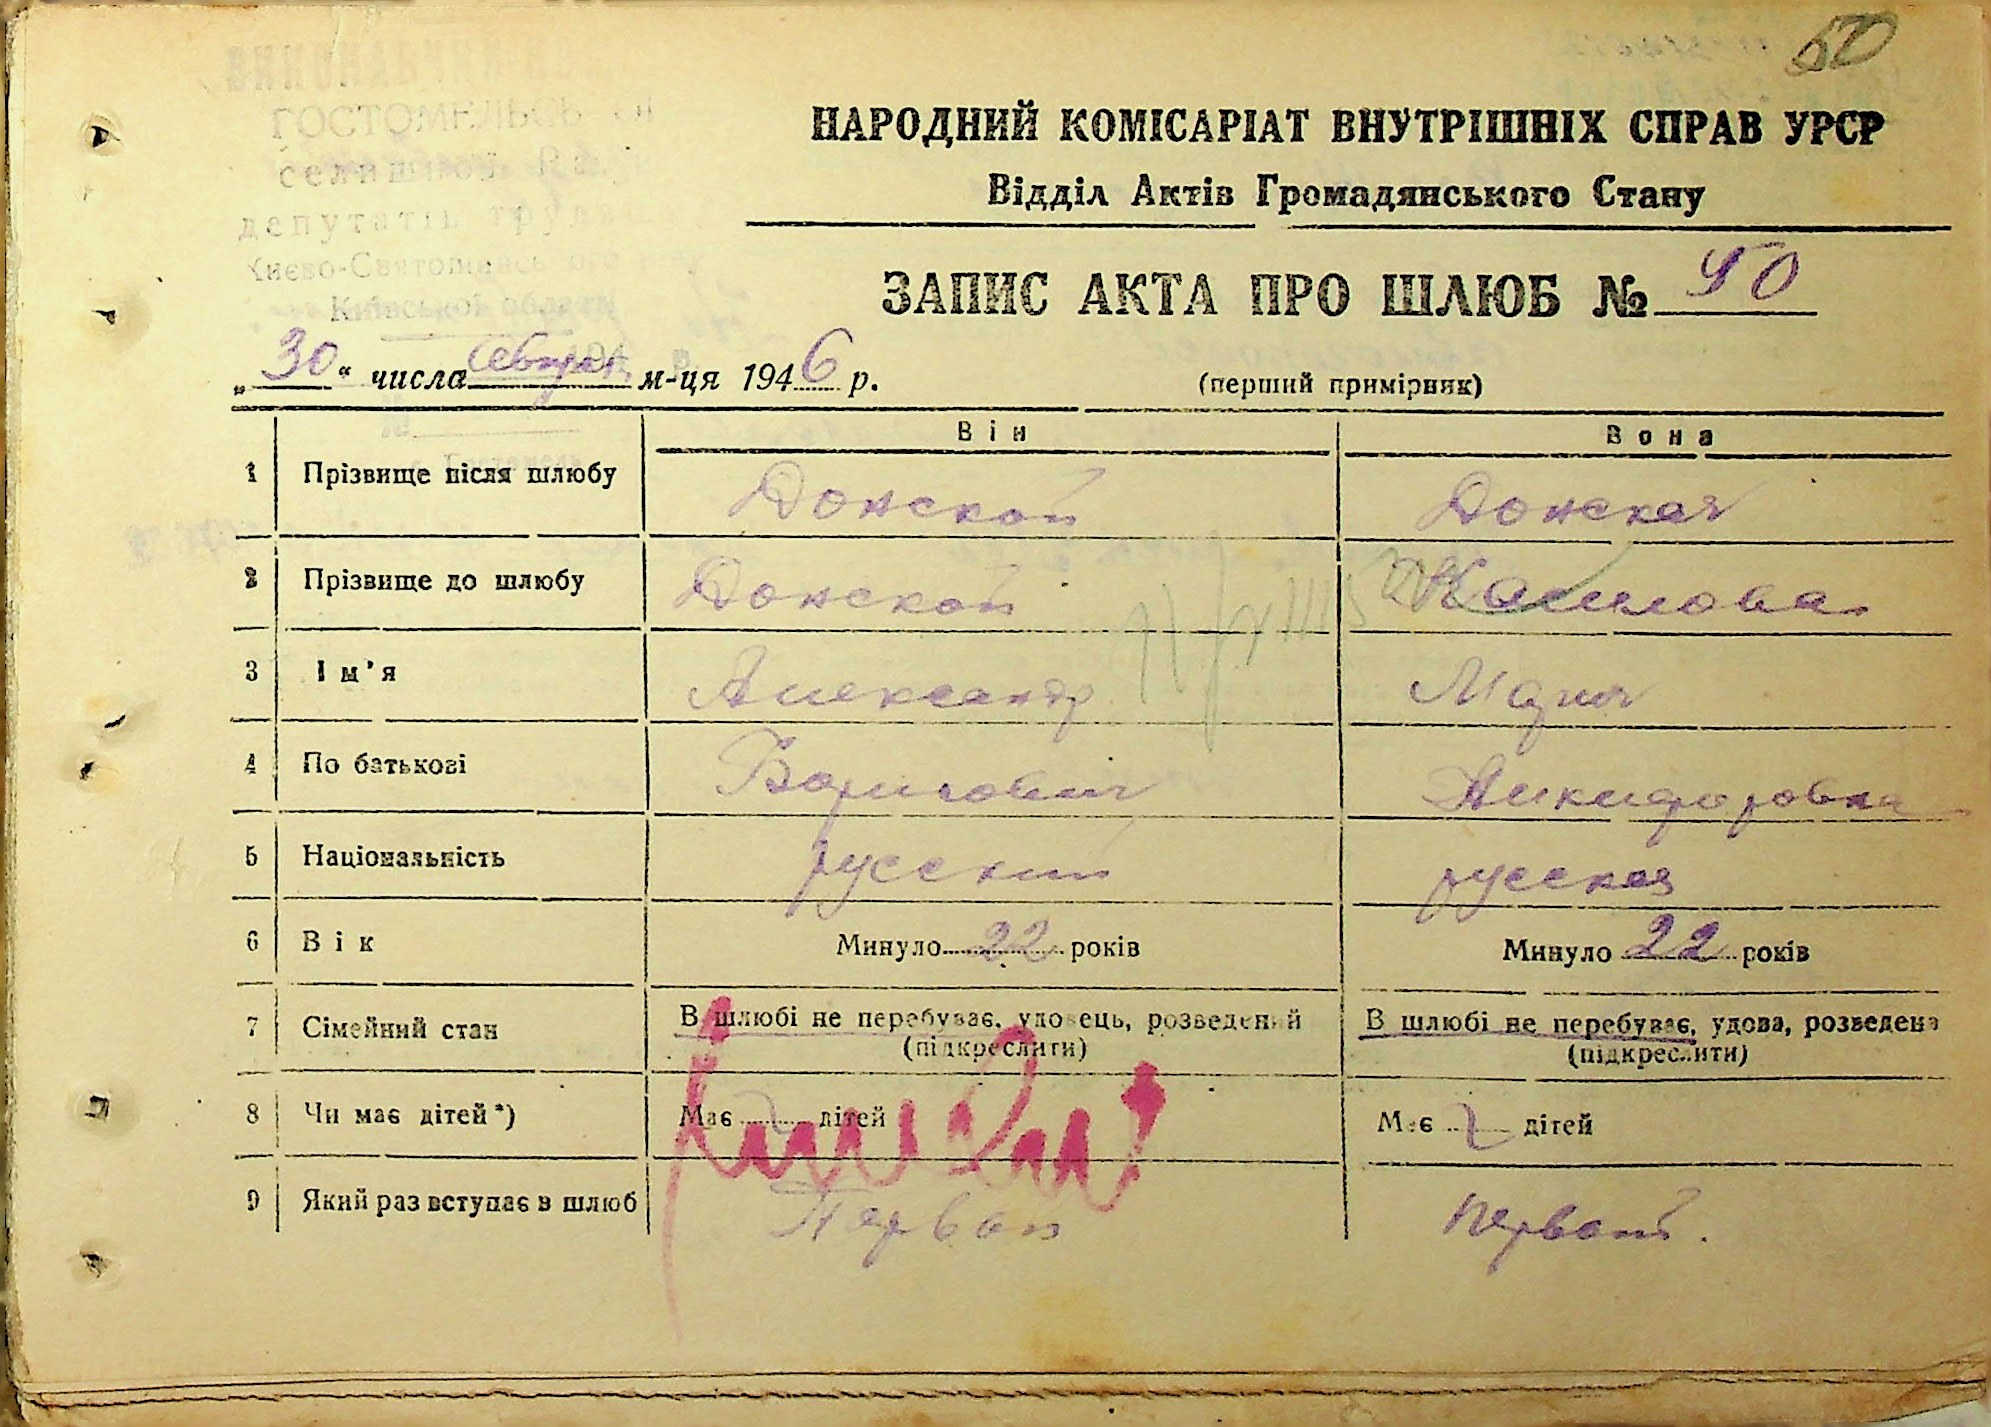 50
ГОСТОМЕЛЬСЬ
селищної Рад
депутатів труд
Києво-Святошинського
Київської області
НАРОДНИЙ КОМІСАРІАТ ВНУТРІШНІХ СПРАВ УРСР
Відділ Актів Громадянського Стану
ЗАПИС АКТА ПРО ШЛЮБ № 50
„30“ числа м-ця 1946 р.
(перший примірник)
Він Вона
1 Прізвище після шлюбу Донской Донская
2 Прізвище до шлюбу Донской
3 Ім'я Александр Мария
4 По батькові Борисович Никифоровна
5 Національність русский русская
6 Вік Минуло 22 років Минуло 22 років
7 Сімейний стан В шлюбі не перебуває, удовець, розведений В шлюбі не перебуває, удова, розведена
(підкреслити) (підкреслити)
8 Чи має дітей*) Має дітей Має дітей
9 Який раз вступає в шлюб Первый Первый.